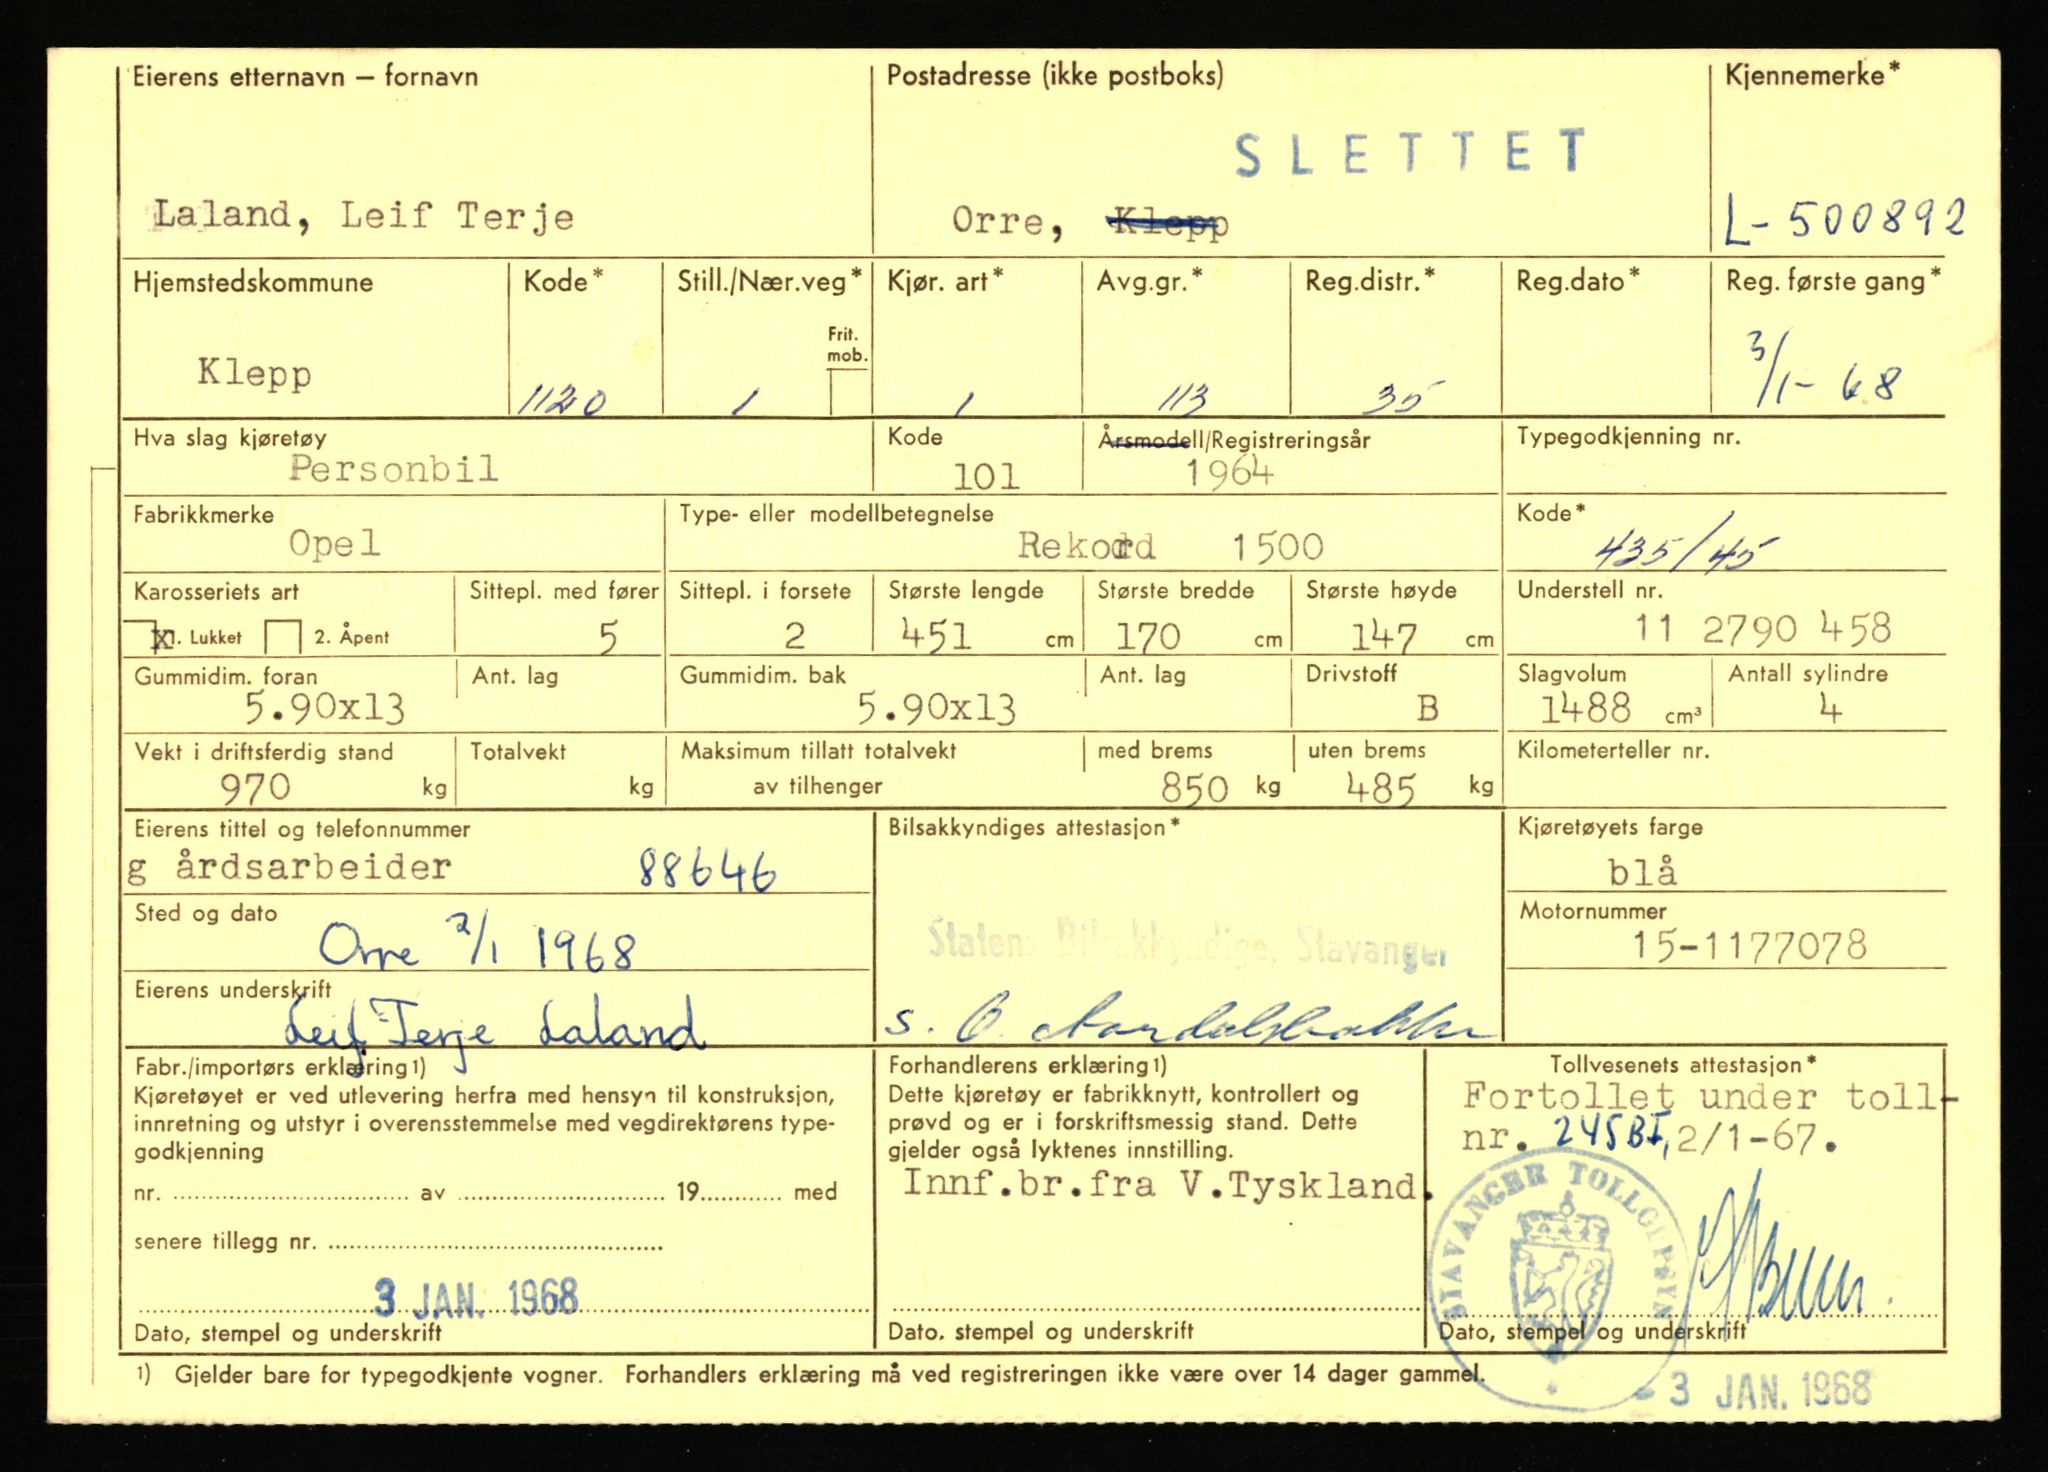 Eierens etternavn – fornavn
Postadresse (ikke postboks)
Kjennemerke*
SLETTET
Laland, Leif Terje
Orre, Klepp
L-500892
Hjemstedskommune
Kode*
Still./Nær.veg*
Kjør. art*
Avg.gr.*
Reg.distr.*
Reg.dato*
Reg. første gang*
Frit.
mob.
Klepp
1120
1
1
113
35
3/1-68
Hva slag kjøretøy
Kode
Årsmodell/Registreringsår
Typegodkjenning nr.
Personbil
101
1964
Fabrikkmerke
Type- eller modellbetegnelse
Kode*
Opel
Rekord 1500
435/45
Karosseriets art
Sittepl. med fører
Sittepl. i forsete
Største lengde
Største bredde
Største høyde
Understell nr.
x 1. Lukket
2. Åpent
5
2
451 cm
170 cm
147 cm
11 2790 458
Gummidim. foran
Ant. lag
Gummidim. bak
Ant. lag
Drivstoff
Slagvolum
Antall sylindre
5.90x13
5.90x13
B
1488 cm³
4
Vekt i driftsferdig stand
Totalvekt
Maksimum tillatt totalvekt
med brems
uten brems
Kilometerteller nr.
970 kg
kg
av tilhenger
850 kg
485 kg
Eierens tittel og telefonnummer
Bilsakkyndiges attestasjon*
Kjøretøyets farge
g årdsarbeider
88646
blå
Sted og dato
Motornummer
Orre 2/1 1968
Statens Bilsakkyndige, Stavanger
15-1177078
Eierens underskrift
Leif Terje Laland
s. O.
Fabr./importørs erklæring1)
Kjøretøyet er ved utlevering herfra med hensyn til konstruksjon,
innretning og utstyr i overensstemmelse med vegdirektørens type-
godkjenning
nr. av 19 med
senere tillegg nr.
3 JAN. 1968
Dato, stempel og underskrift
Forhandlerens erklæring1)
Dette kjøretøy er fabrikknytt, kontrollert og
prøvd og er i forskriftsmessig stand. Dette
gjelder også lyktenes innstilling.
Innf.br.fra V.Tyskland.
Dato. stempel og underskrift
Tollvesenets attestasjon*
Fortollet under toll-
nr. 245BI, 2/1-67.
STAVANGER TOLLOPPSYN
Dato, stempel og underskrift
1) Gjelder bare for typegodkjente vogner. Forhandlers erklæring må ved registreringen ikke være over 14 dager gammel.
- 3 JAN. 1968